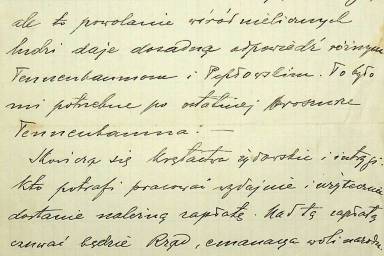 ale to powołanie wśród nielicznych
ludzi daje dosadną odpowiedź różnym
Tennenbaumom i Pepłowskim. To było
mi potrzebne po ostatniej broszurze
Tennenbauma: —
Skończą się krętactwa żydowskie i intrygi.
Kto potrafi pracować wydajnie i użytecznie
dostanie należną zapłatę. Nad tą zapłatą
czuwać będzie Rząd, emanacja woli narodu.